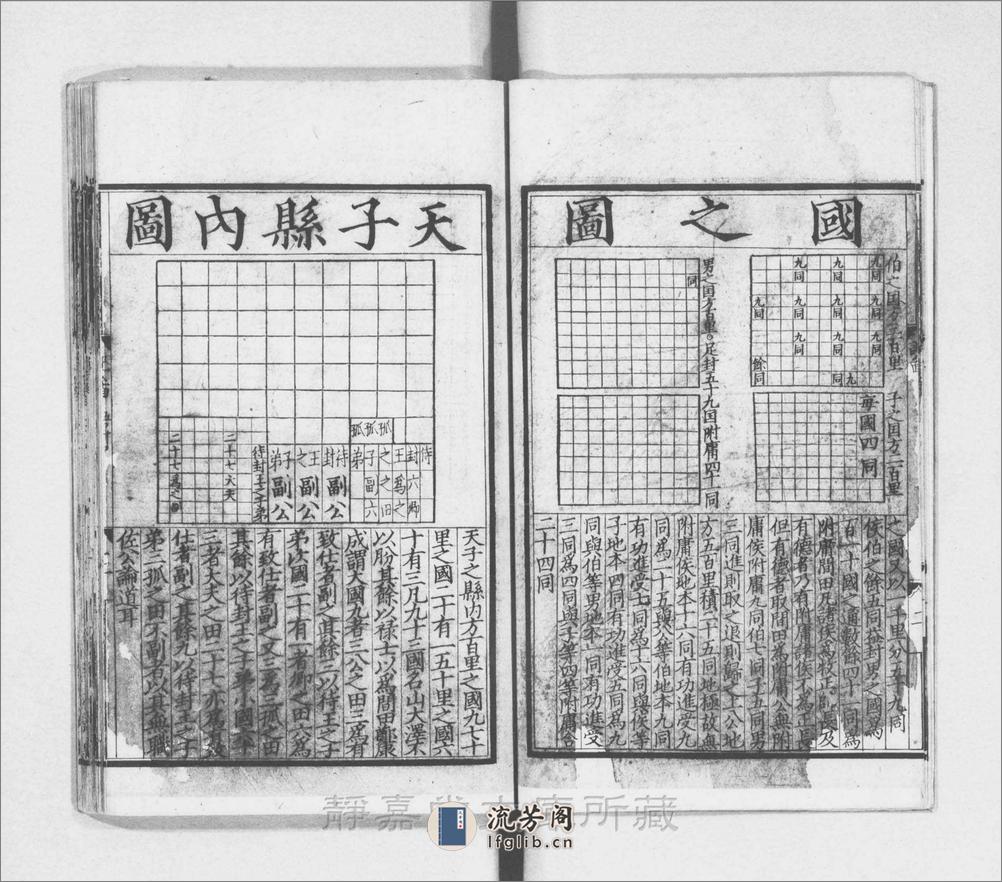 國之圖
伯之国方三百里
九同
九同
九同
九同
九同
九同
九同
九同
九同
九同
九同
餘同
子之国方二百里
每國四同
男之国方百里足封五十九国附庸四十同
同
之國又以一千里分五十九同
侯伯之餘五同共封男之國爲
百一十國之通數餘四十一同爲
附庸間田凡諸侯爲牧正帥長及
有德者乃有附庸諸侯不爲正長
但有德者取間田爲附庸公無附
庸侯附庸九同伯七同子五同男
三同進則取之退則歸之上公地
方五百里積二十五同地極故無
附庸侯地本十六同有功進受九
同爲二十五與公等伯地本九同
有功進受七同爲十六同與侯等
子地本四同有功進受五同爲九
同與伯等男地本一同有功進受
三同爲四同與子等四等附庸合
二十四同
天子縣內圖
待封六卿
王爲之
之之田
子副六
弟
孤
孤
孤
待封副公
王之副公
子弟副公
待封王之子弟
二十七大夫
二十七爲之田
天子之縣内方百里之國九七十
里之國二十有一五十里之國六
十有三凡九十三國名山大澤不
以朌其餘以禄士以爲間田鄭康
成謂大國九者三公之田三爲有
致仕者副之其餘三以待王之子
弟次國二十有一者卿之田六爲
有致仕者副之又三爲三孤之田
其餘以待封王之子弟小國六十
三者大夫之田二十七亦爲有致
仕者副之其餘九以待封王之子
弟三孤之田不副者以其無職
佐公論道耳
靜嘉堂文庫所藏
流芳阁
lfglib.cn